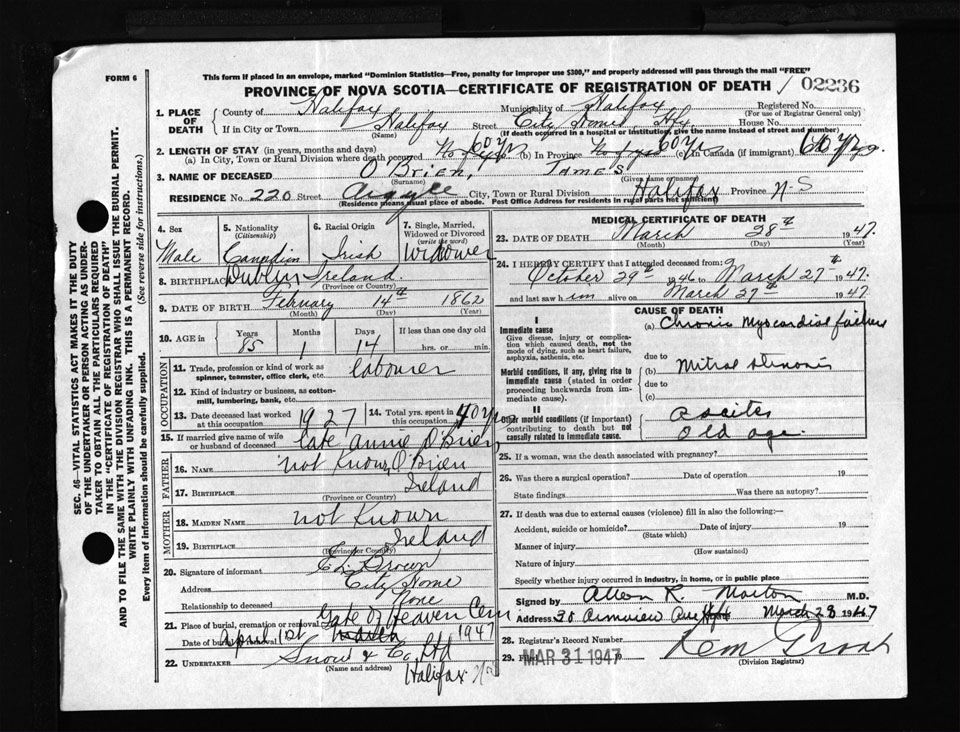 FORM 6
This form if placed in an envelope, marked "Dominion Statistics—Free, penalty for improper use $300," and properly addressed will pass through the mail "FREE"
PROVINCE OF NOVA SCOTIA—CERTIFICATE OF REGISTRATION OF DEATH
02236
1. PLACE OF DEATH
County of Halifax Municipality of Halifax Registered No.
(For use of Registrar General only)
If in City or Town Halifax Street City Home, Hfx House No.
(Name) (If death occurred in a hospital or institution, give the name instead of street and number)
2. LENGTH OF STAY (in years, months and days)
(a) In City, Town or Rural Division where death occurred 60 yrs (b) In Province 60 yrs (c) In Canada (if immigrant) 60 yrs.
3. NAME OF DECEASED O'Brien, James
(Surname) (Given name or names)
RESIDENCE No. 220 Street Argyle City, Town or Rural Division Halifax Province N-S
(Residence means usual place of abode. Post Office Address for residents in rural parts not sufficient)
4. Sex Male
5. Nationality (Citizenship) Canadian
6. Racial Origin Irish
7. Single, Married, Widowed or Divorced (write the word) Widower
8. BIRTHPLACE Dublin Ireland.
(Province or Country)
9. DATE OF BIRTH February 14th 1862
(Month) (Day) (Year)
10. AGE in Years 85 Months 1 Days 14 If less than one day old hrs. or min.
11. Trade, profession or kind of work as spinner, teamster, office clerk, etc. labourer
12. Kind of industry or business, as cotton-mill, lumbering, bank, etc.
13. Date deceased last worked at this occupation 1927 14. Total yrs. spent in this occupation 40 yrs
15. If married give name of wife or husband of deceased late Annie O'Brien
FATHER
16. NAME not Known O'Brien
17. BIRTHPLACE Ireland
(Province or Country)
MOTHER
18. MAIDEN NAME not Known
19. BIRTHPLACE Ireland
(Province or Country)
20. Signature of informant Brown
Address City Home
Relationship to deceased None
21. Place of burial, cremation or removal Gate of Heaven Cem
Date of burial April 1st 1947
22. UNDERTAKER Snow & Co Ltd
(Name and address) Halifax NS
MEDICAL CERTIFICATE OF DEATH
23. DATE OF DEATH March 28th 1947.
(Month) (Day) (Year)
24. I HEREBY CERTIFY that I attended deceased from:
October 29th 1946 to March 27th 1947.
and last saw him alive on March 27th 1947
CAUSE OF DEATH
I
Immediate cause
Give disease, injury or complication which caused death, not the mode of dying, such as heart failure, asphyxia, asthenia, etc.
(a) Chronic Myocardial failure
due to
Morbid conditions, if any, giving rise to immediate cause (stated in order proceeding backwards from immediate cause).
(b) Mitral stenosis
due to
(c)
II
Other morbid conditions (if important) contributing to death but not causally related to immediate cause.
ascites
old age.
25. If a woman, was the death associated with pregnancy?
26. Was there a surgical operation? Date of operation 19
State findings Was there an autopsy?
27. If death was due to external causes (violence) fill in also the following:—
Accident, suicide or homicide? Date of injury 19
(State which)
Manner of injury
(How sustained)
Nature of injury
Specify whether injury occurred in industry, in home, or in public place
Signed by Allan R. Morton M.D.
Address 30 Armview Ave Hfx March 28 1947
28. Registrar's Record Number
29. Filed MAR 31 1947
(Division Registrar)
SEC. 45—VITAL STATISTICS ACT MAKES IT THE DUTY
OF THE UNDERTAKER OR PERSON ACTING AS UNDERTAKER
TO OBTAIN ALL THE PARTICULARS REQUIRED
IN THE "CERTIFICATE OF REGISTRATION OF DEATH"
AND TO FILE THE SAME WITH THE DIVISION REGISTRAR WHO SHALL ISSUE THE BURIAL PERMIT.
WRITE PLAINLY WITH UNFADING INK. THIS IS A PERMANENT RECORD.
Every item of information should be carefully supplied. (See reverse side for instructions.)